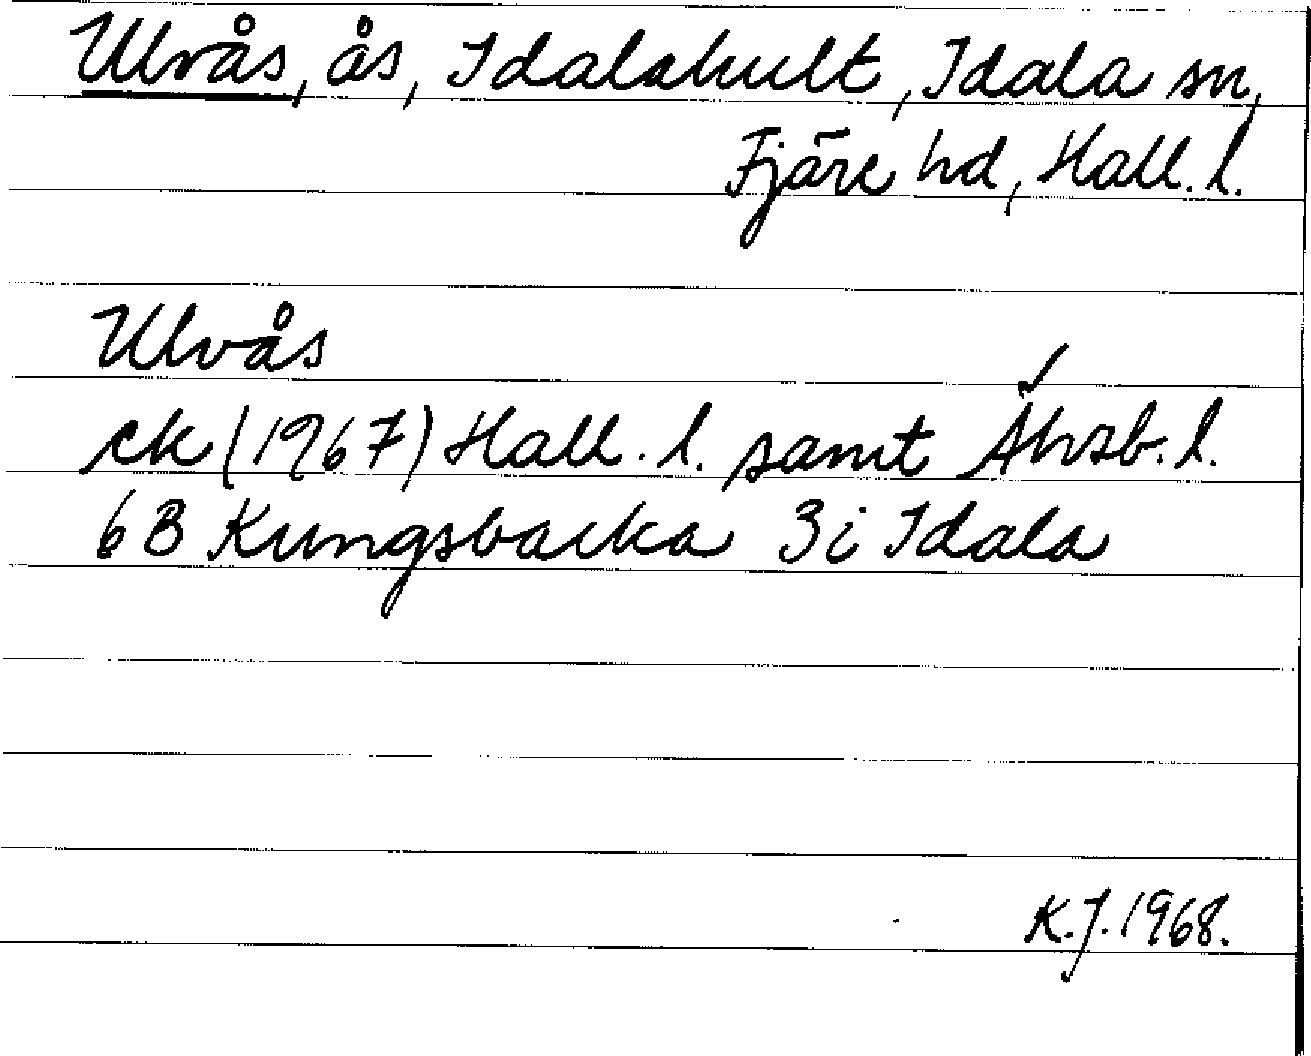 Ulvås, ås, Idalahult, Idala sn,
Fjäre hd, Hall. l.
Ulvås
ek (1967) Hall. l. samt Älvsb. l.
6B Kungsbacka 3i Idala
K.J. 1968.